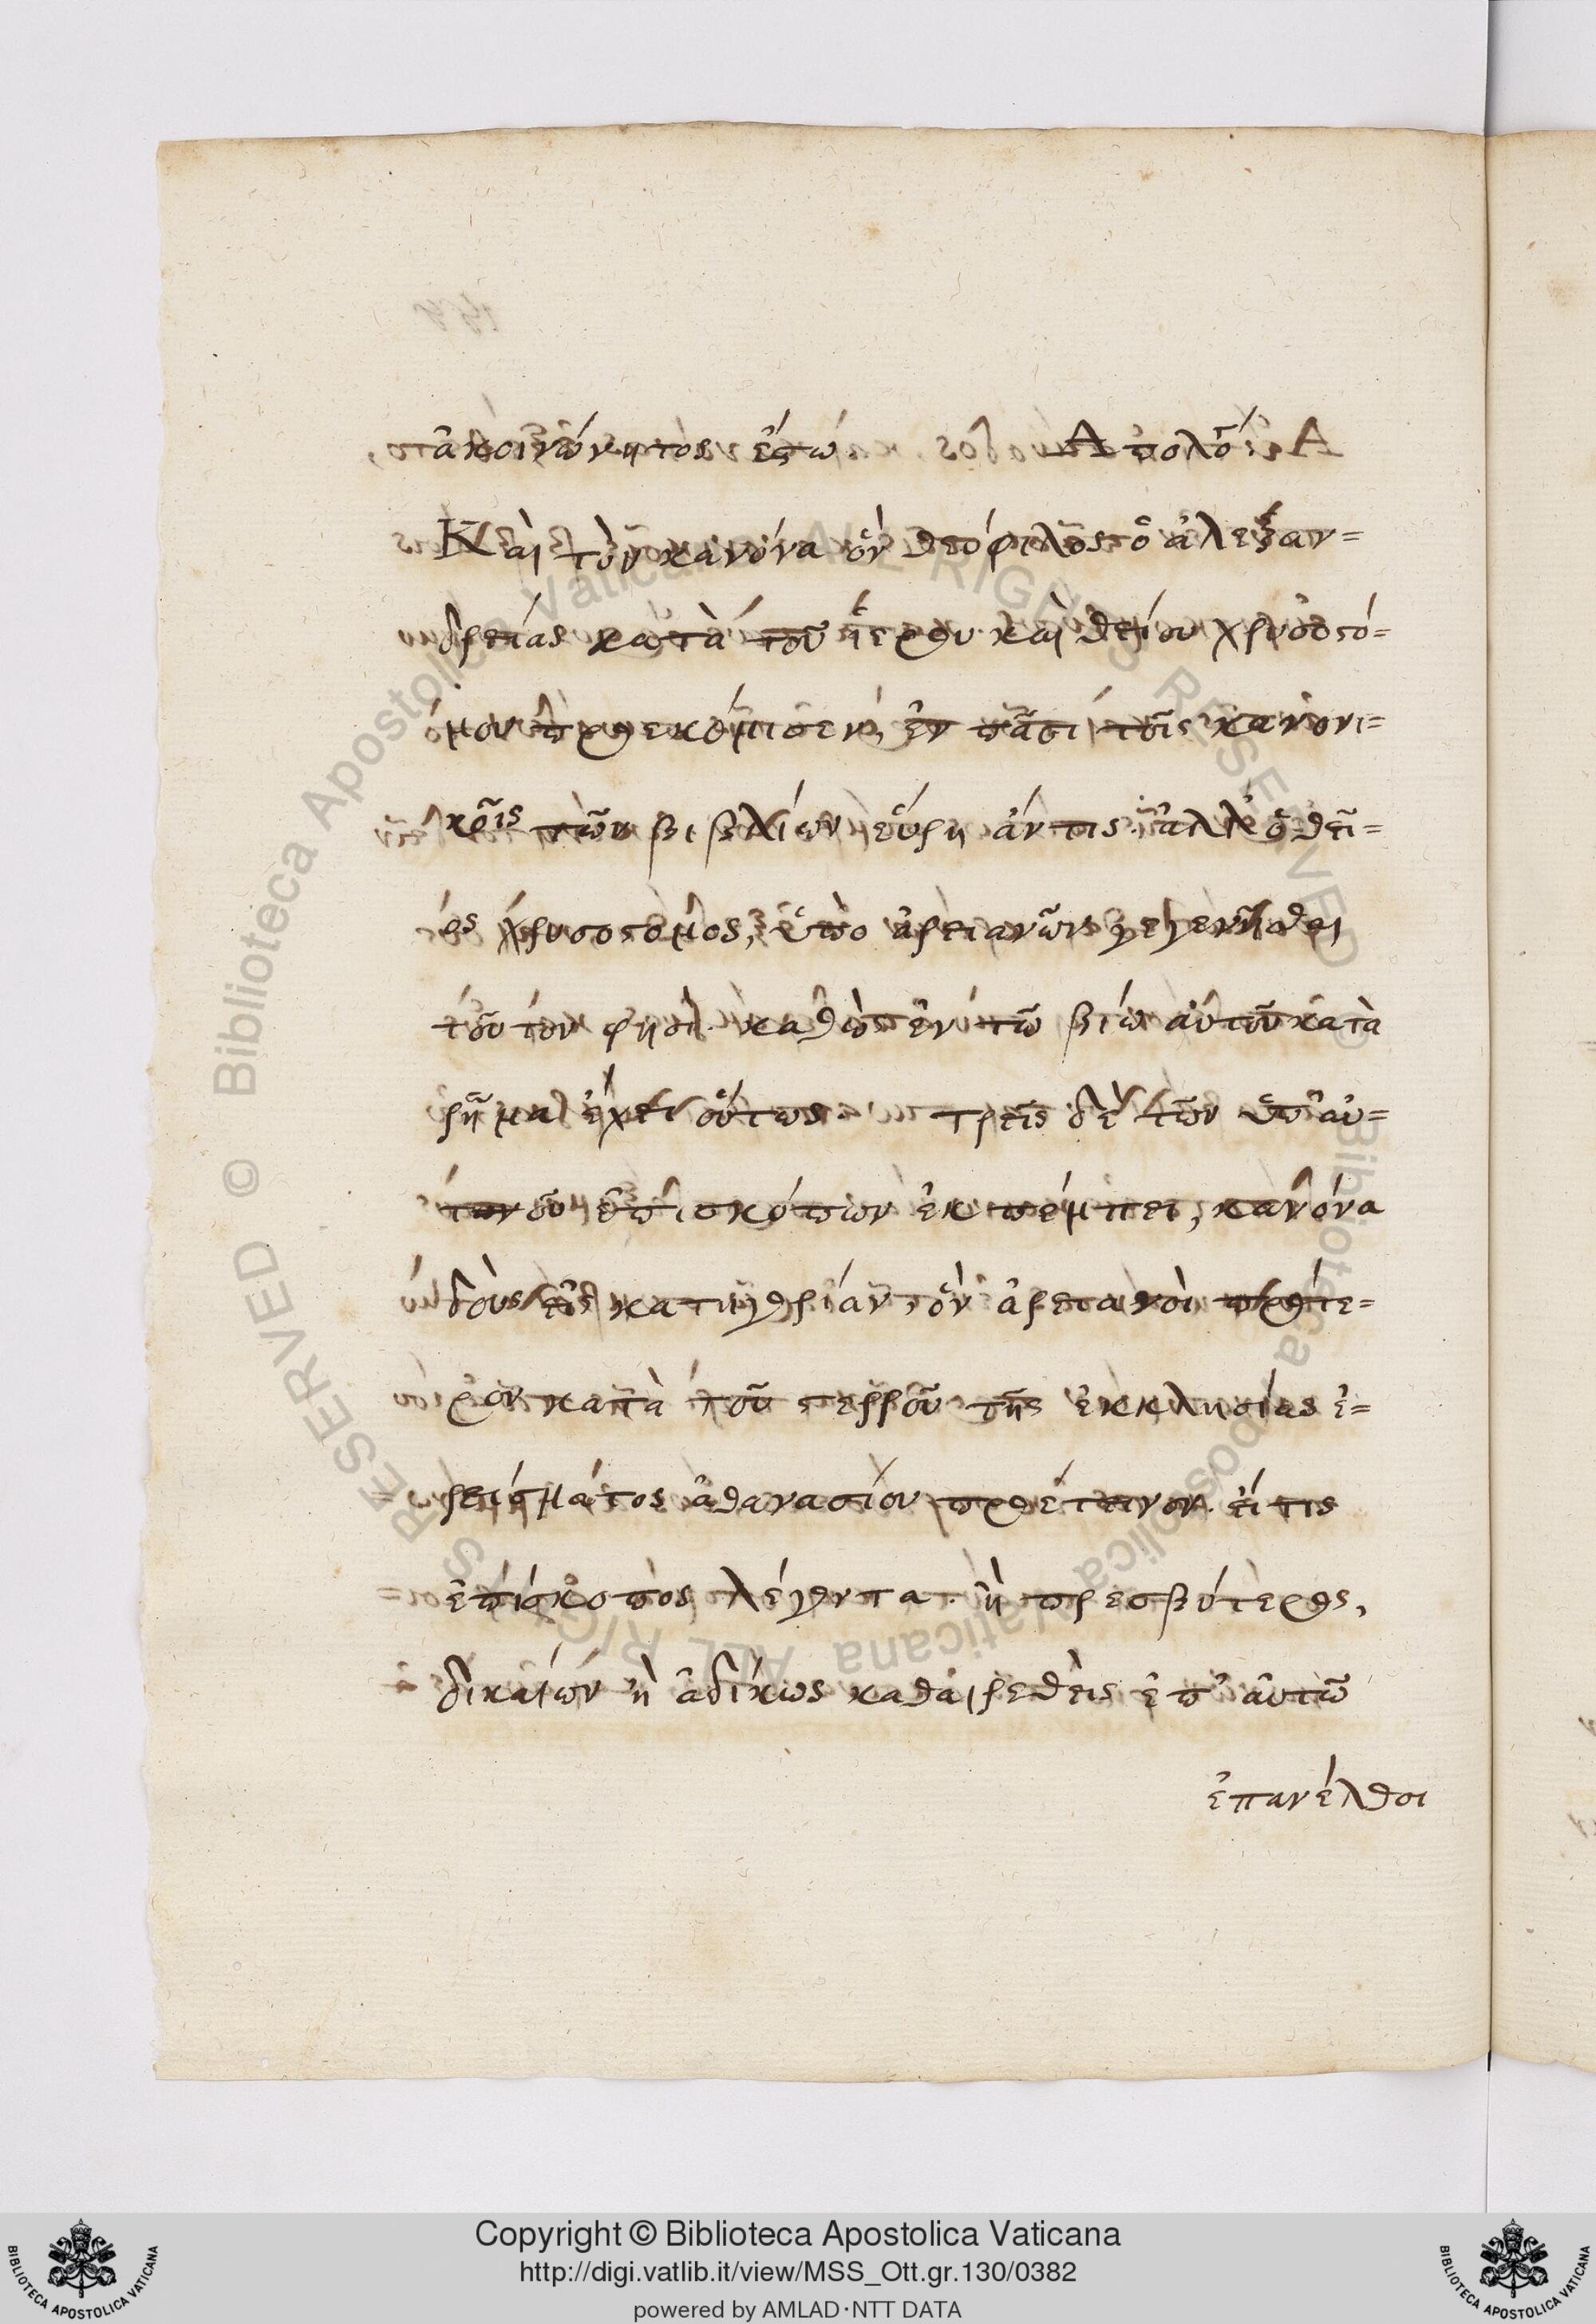 ἀκοινώνητος ἔστω. Ἀπολογ
Καὶ τὸν κανόνα ὃν θεόφιλος ὁ ἀλεξαν=
δρείας κατὰ τοῦ ἱεροῦ καὶ θείου χρυσοστό=
μου προεκόμισεν, ἐν πᾶσι τοῖς κανονι=
κοῖς τῶν βιβλίων εὕρη ἄν τις. ἀλλ' ὁ θεῖ=
ος χρυσόστομος, ὑπὸ ἀρειανῶν γεγενῆσθαι
τοῦτον φησί. καθὼς ἐν τῶ βίω αὐτοῦ κατὰ
ῥῆμα ἔχει οὕτως. τρεῖς δὲ τῶν ὑπ' αὐ=
τὸν ἐπισκόπων ἐκπέμπει, κανόνα
δοὺς εἰς κατηγορίαν, ὃν ἀρειανοὶ πρότε=
ρον κατὰ τοῦ στερροῦ τῆς ἐκκλησίας ἐ=
ρείσματος ἀθανασίου προέτεινον. εἴ τις
ἐπίσκοπος λέγοντα. ἢ πρεσβύτερος,
δικαίως ἢ ἀδίκως καθαιρεθεὶς ἐπ' αὐτῶ
ἐπανέλθοι
Copyright © Biblioteca Apostolica Vaticana
http://digi.vatlib.it/view/MSS_Ott.gr.130/0382
powered by AMLAD·NTT DATA